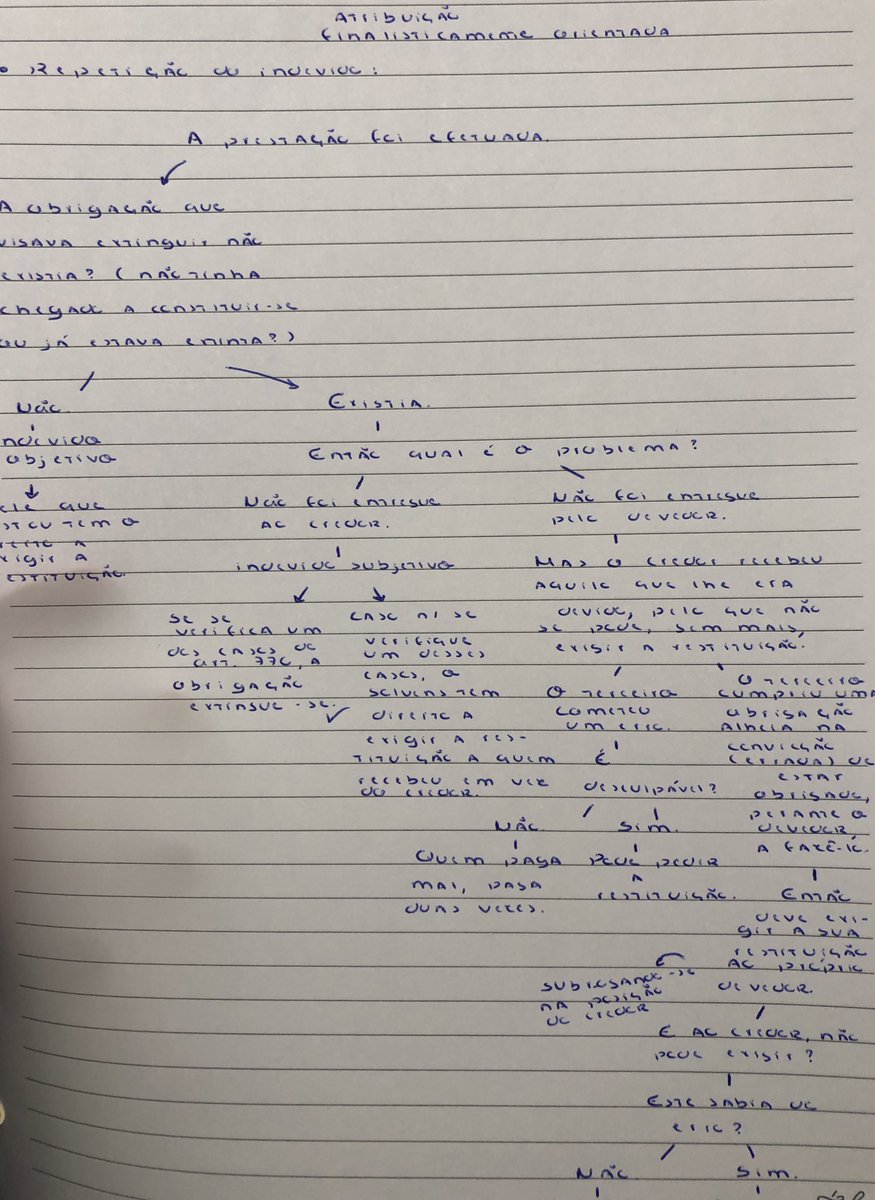 Atribuição
finalisticamente orientada
Repetição do indevido:
A prestação foi efetuada.
A obrigação que
visava extinguir não
existia? (não tinha
chegado a constituir-se
ou já estava extinta?)
Não.
indevido
objetivo
que
tem o
a
exigir a
restituição.
Existia.
Então qual é o problema?
Não foi entregue
ao credor.
indevido subjetivo
se se
verifica um
dos casos do
art. 770, a
obrigação
extingue-se.
caso ñ se
verifique
um desses
casos, o
solvens tem
direito a
exigir a res-
tituição a quem
recebeu em vez
do credor.
Não foi entregue
pelo devedor.
Mas o credor recebeu
aquilo que lhe era
devido, pelo que não
se pode, sem mais,
exigir a restituição.
O terceiro
cometeu
um erro.
É
desculpável?
Não.
Quem paga
mal, paga
duas vezes.
Sim.
Pode pedir
a
restituição.
O terceiro
cumpriu uma
obrigação
alheia na
convicção
(errada) de
estar
obrigado,
perante o
devedor,
a fazê-lo.
Então
deve exi-
gir a sua
restituição
ao próprio
devedor.
subrogando-se
na posição
do credor
E ao credor, não
pode exigir?
Este sabia do
erro?
Não.
Sim.